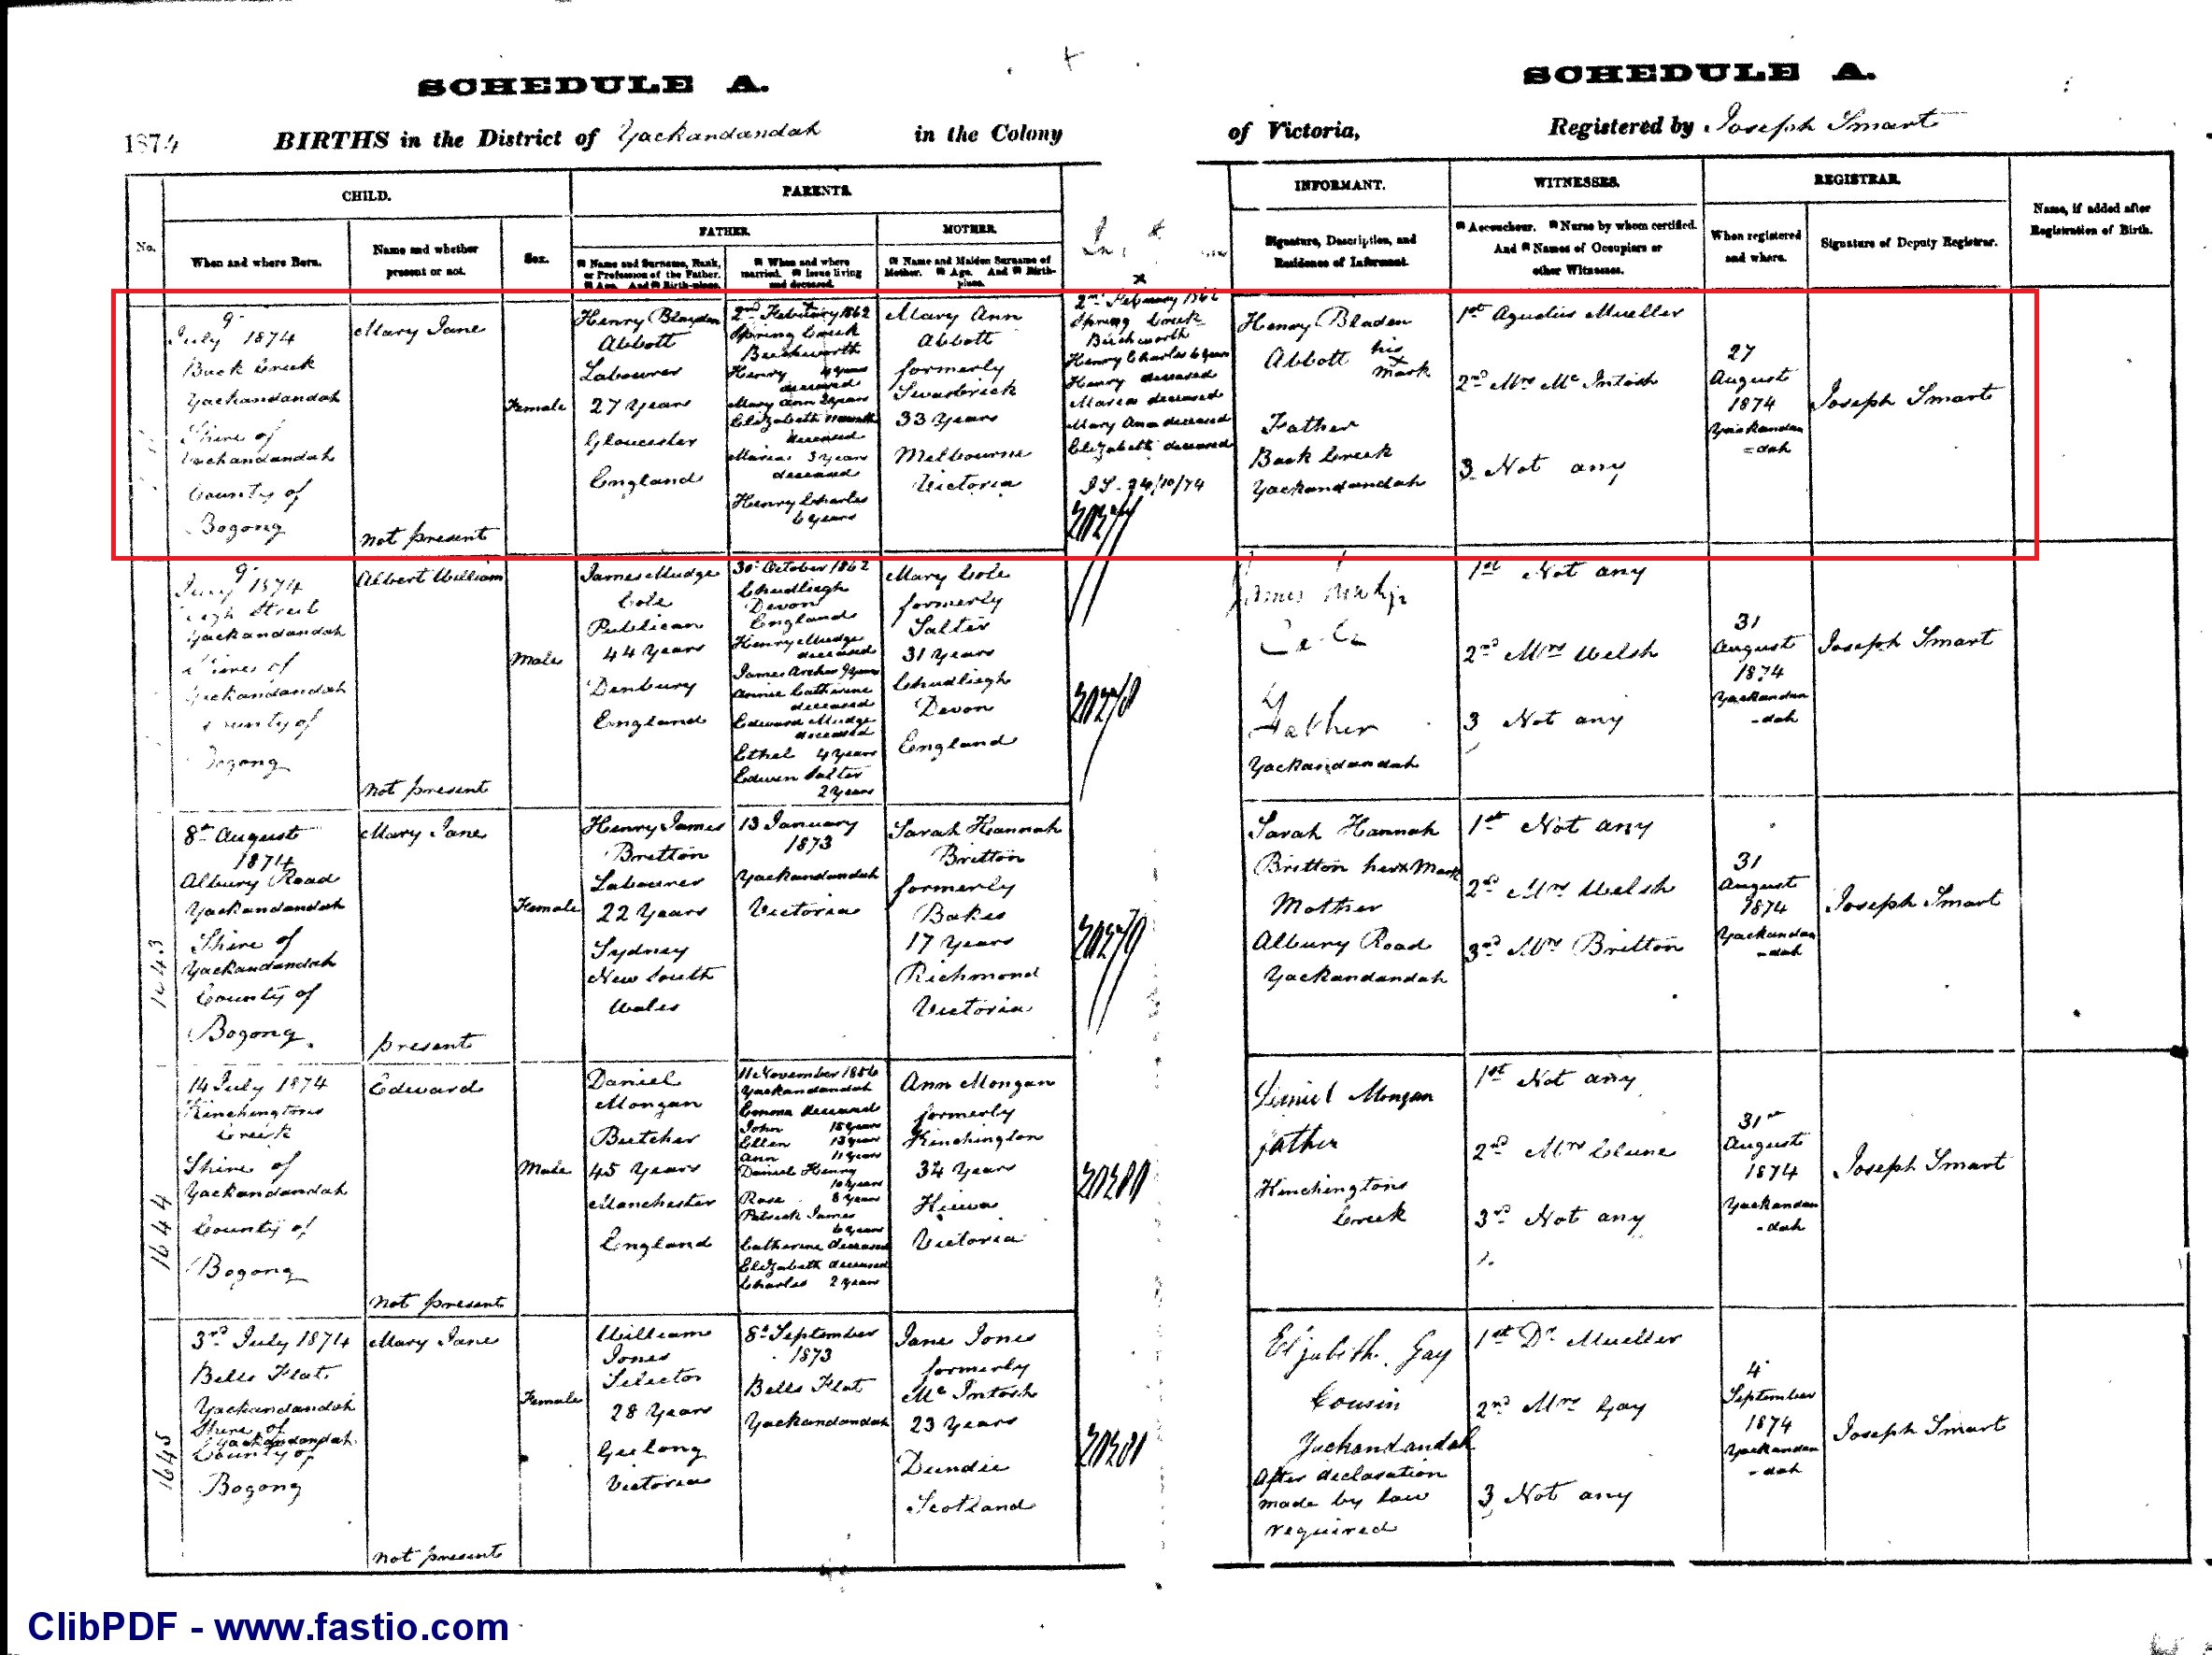 SCHEDULE A.
SCHEDULE A.
1874 BIRTHS in the District of Yackandandah in the Colony of Victoria, Registered by Joseph Smart
No.
CHILD.
When and where Born.
Name and whether present or not.
Sex.
PARENTS.
FATHER.
Name and Surname, Rank, or Profession of the Father. Age. And Birth-place.
When and where married. Issue living and deceased.
MOTHER.
Name and Maiden Surname of Mother. Age. And Birth-place.
INFORMANT.
Signature, Description, and Residence of Informant.
WITNESSES.
Accoucheur. Nurse by whom certified. And Names of Occupiers or other Witnesses.
REGISTRAR.
When registered and where.
Signature of Deputy Registrar.
Name, if added after Registration of Birth.
9
July 1874
Back Creek
Yackandandah
Shire of
Yackandandah
County of
Bogong
Mary Jane
not present
Female
Henry Blayden
Abbott
Labourer
27 Years
Gloucester
England
2nd February 1862
Spring Creek
Beechworth
Henry 4 years
deceased
Mary Ann 2 years
Elizabeth
deceased
Maria 3 years
deceased
Henry Charles
6 years
Mary Ann
Abbott
formerly
33 Years
Melbourne
Victoria
2nd February 1862
Spring Creek
Beechworth
Henry Charles 6 years
Henry deceased
Maria deceased
Mary Ann deceased
Elizabeth deceased
J S. 24/10/74
20277
Henry Bladen
Abbott his
x
mark
Father
Back Creek
Yackandandah
1st Agustus Mueller
2nd Mrs McIntosh
3 Not any
27
August
1874
Yackandan
=dah
Joseph Smart
9
July 1874
High Street
Yackandandah
Shire of
Yackandandah
County of
Bogong
Albert William
not present
Male
James Mudge
Cole
Publican
44 Years
Denbury
England
30 October 1862
Chudliegh
Devon
England
Henry Mudge
deceased
James Archer 9 years
Annie Catherine
deceased
Edward Mudge
deceased
Ethel 4 years
Edwin Salter
2 years
Mary Cole
formerly
Salter
31 Years
Chudliegh
Devon
England
20278
James
Father
Yackandandah
1st Not any
2nd Mrs Welsh
3 Not any
31
August
1874
Yackandan
-dah
Joseph Smart
1643
8th August
1874
Albury Road
Yackandandah
Shire of
Yackandandah
County of
Bogong.
Mary Jane
present
Female
Henry James
Britton
Labourer
22 Years
Sydney
New South
Wales
13 January
1873
Yackandandah
Victoria
Sarah Hannah
Britton
formerly
17 Years
Richmond
Victoria
20279
Sarah Hannah
Britton her x Mark
Mother
Albury Road
Yackandandah
1st Not any
2nd Mrs Welsh
3rd Mrs Britton
31
August
1874
Yackandan
-dah
Joseph Smart
1644
14 July 1874
Kinchingtons
Creek
Shire of
Yackandandah
County of
Bogong
Edward
not present
Male
Daniel
Mongan
Butcher
45 Years
Manchester
England
11 November 1856
Yackandandah
Emma deceased
John 15 years
Ellen 13 years
Ann 11 years
Daniel Henry
10 years
Rose 8 years
Patrick James
6 years
Catherine deceased
Elizabeth deceased
Charles 2 years
Ann Mongan
formerly
Kinchington
34 Years
Victoria
20280
Daniel Mongan
father
Kinchingtons
Creek
1st Not any
2nd Mrs Clune
3rd Not any
31st
August
1874
Yackandan
-dah
Joseph Smart
1645
3rd July 1874
Bells Flat
Yackandandah
Shire of
Yackandandah
County of
Bogong
Mary Jane
not present
Female
William
Jones
Selector
28 Years
Geelong
Victoria
8th September
1873
Bells Flat
Yackandandah
Jane Jones
formerly
McIntosh
23 Years
Dundie
Scotland
20281
Elizabeth Gay
Cousin
Yackandandah
After declaration
made by law
required
1st Dr Mueller
2nd Mrs Gay
3 Not any
4
September
1874
Yackandan
-dah
Joseph Smart
ClibPDF - www.fastio.com